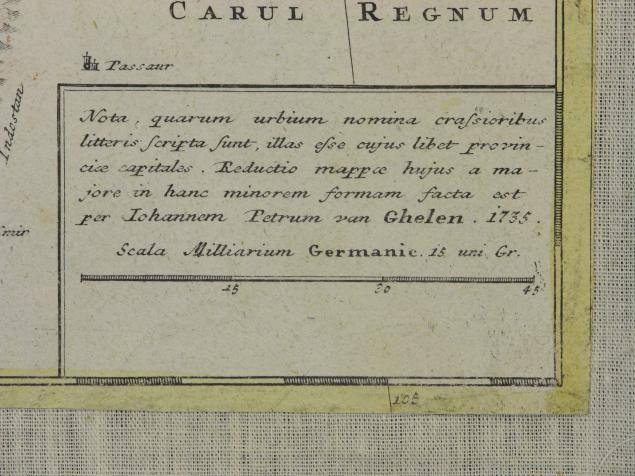 CARUL REGNUM
Passaur
Indostan
Nota, quarum urbium nomina craſsioribus
litteris ſcripta ſunt, illas eſse cujus libet provin-
ciæ capitales. Reductio mappæ hujus a ma-
jore in hanc minorem formam facta est
per Iohannem Petrum van Ghelen. 1735.
Scala Milliarium Germanic. 15 uni Gr.
15 30 45
105